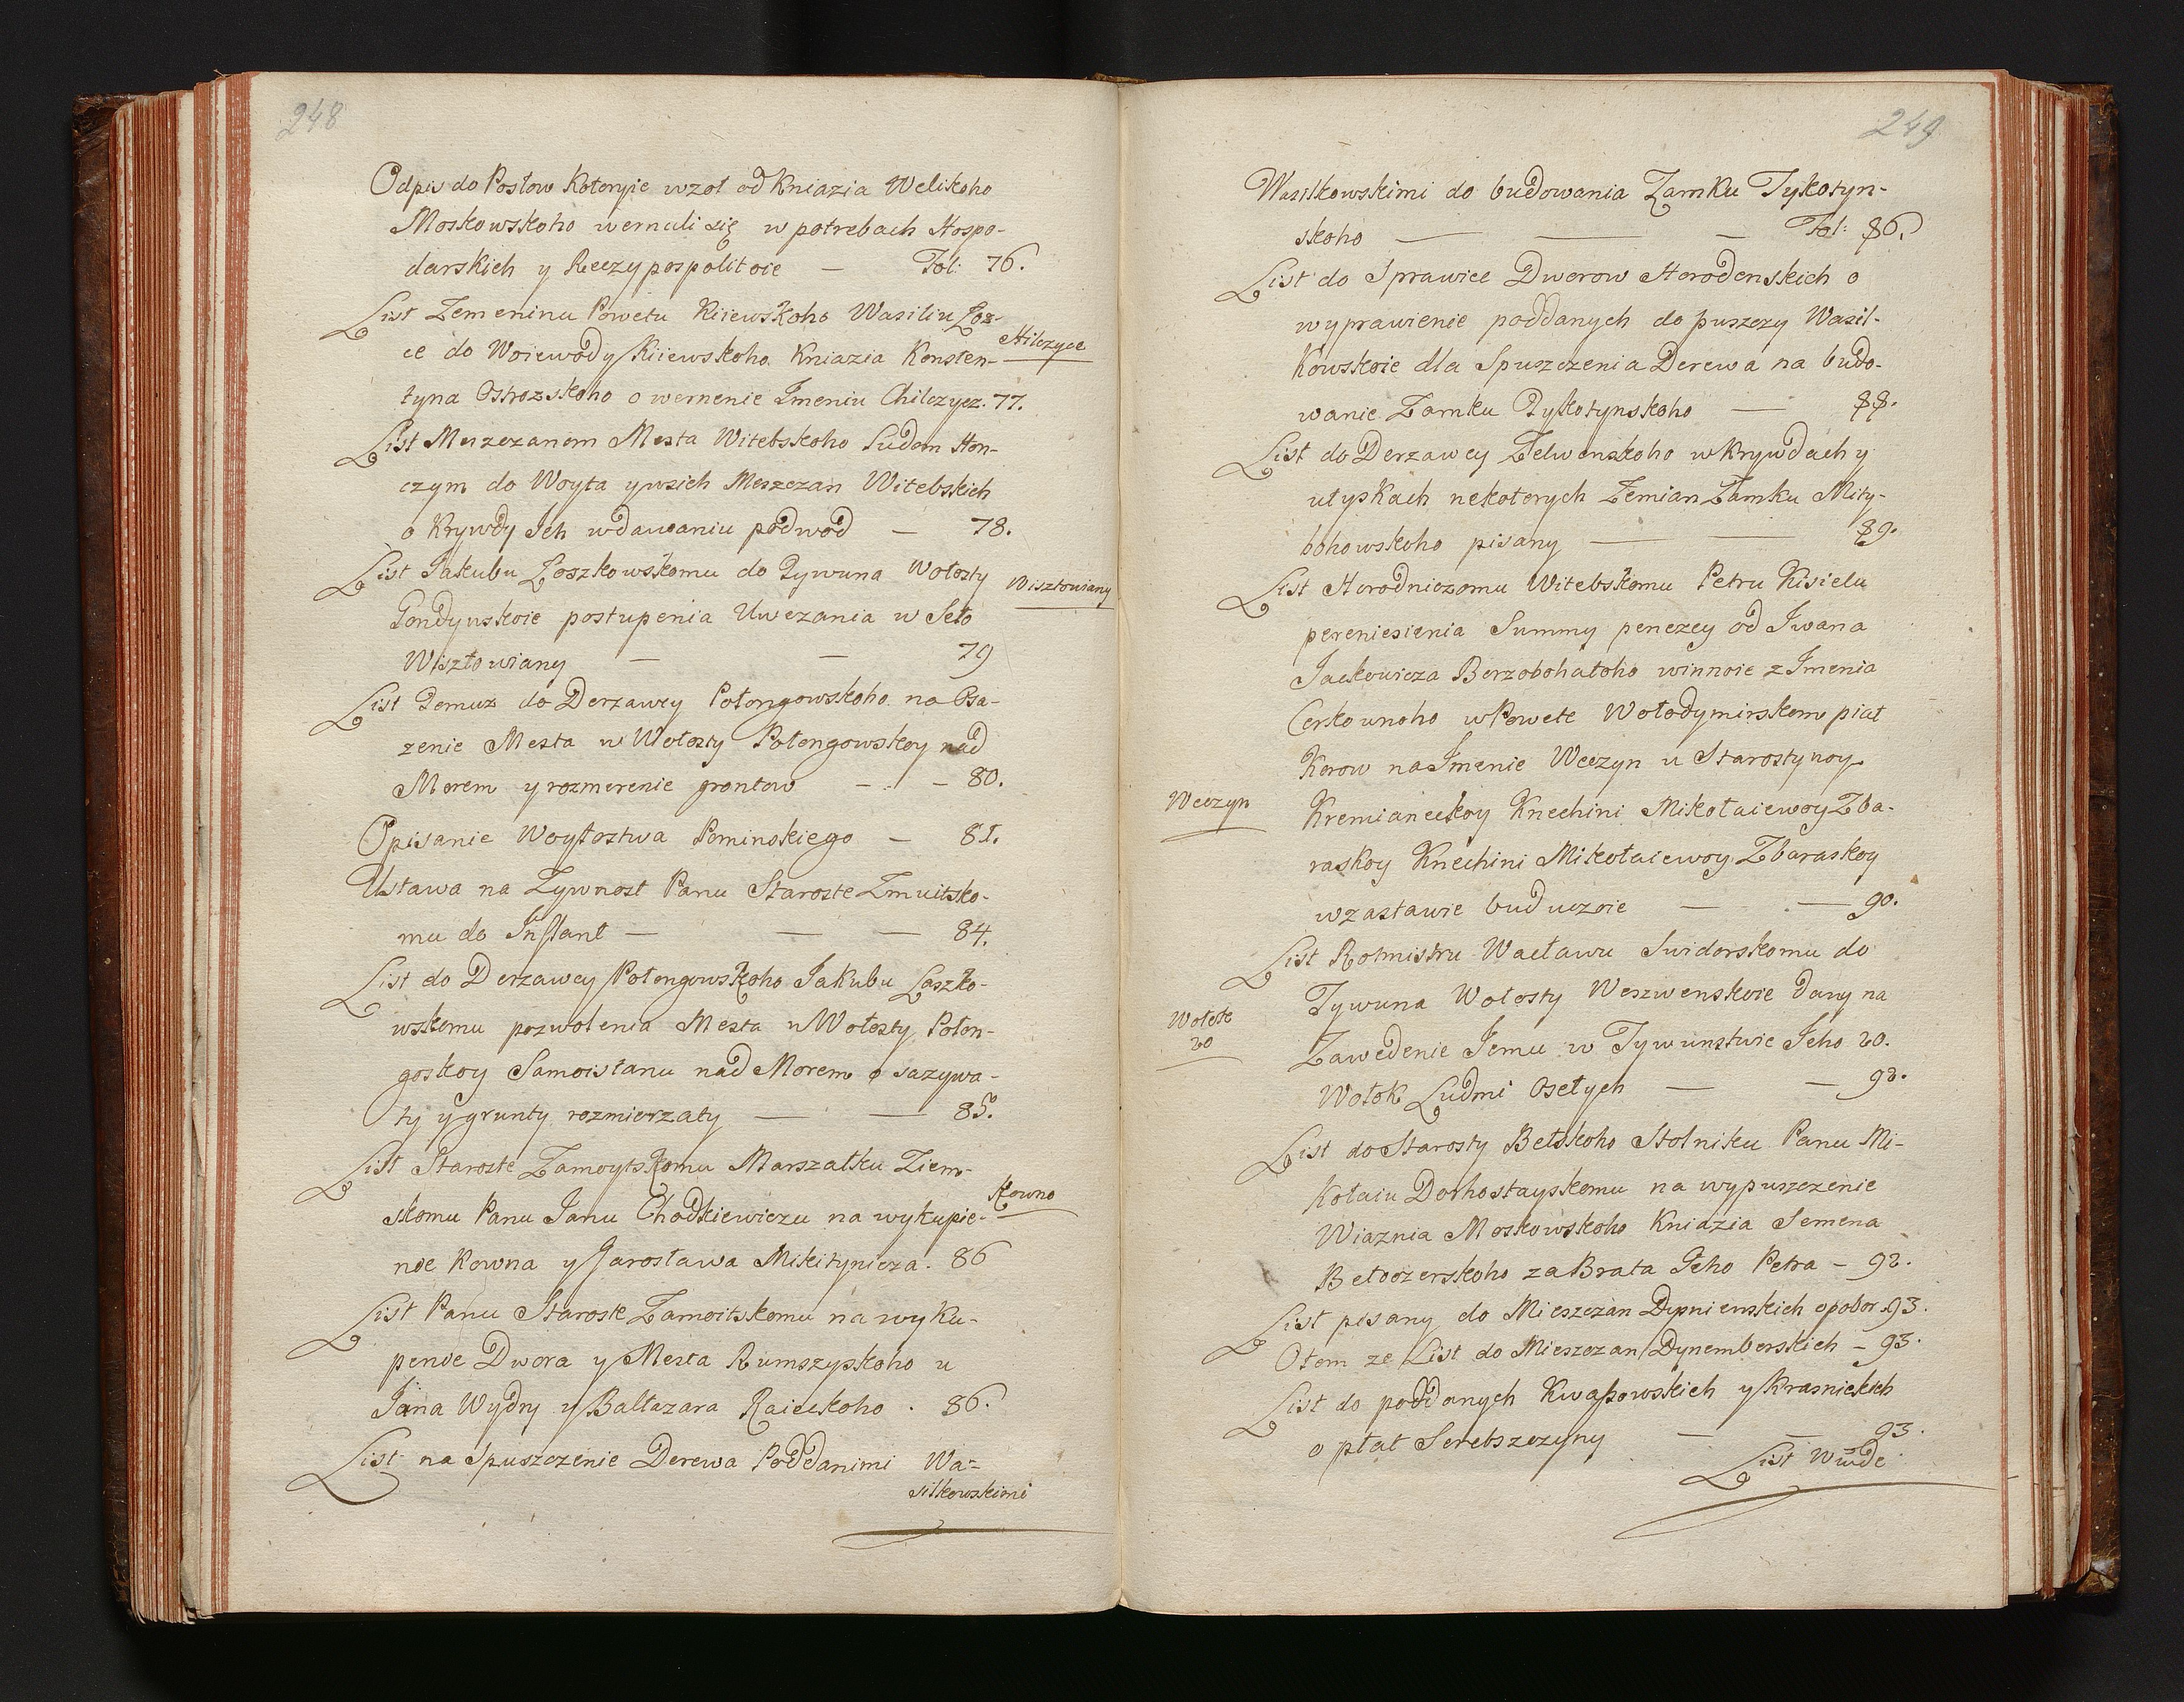 248
Odpis do Posłow Kotoryie wzoł od Kniazia Welikoho
Moskowskoho wernuli się w potrebach Hospo-
darskich y Reczypospolitoie — Fol: 76.
List Zemeninu Powetu Kiiewskoho Wasiliu Łoz-
ce do Woiewody Kiiewskoho Kniazia Konsten-
Hilczyce
tyna Ostrozskoho o wernenie Imeniu Chilczycz. 77.
List Meszczanom Mesta Witebskoho Ludem Hon-
czym do Woyta y wsich Meszczan Witebskich
o Krywdy Ich w dawaniu podwod — 78.
List Jakubu Łoszkowskomu do Tywuna Wołosty
Wisztowiany
Gondynskoie postupenia Uwezania w Seło
Wisztowiany — — 79
List Temuz do Derzawcy Połongowskoho na Osa-
zenie Mesta w Wołosty Połongowskoy nad
Morem y rozmerenie grontow — — 80.
Opisanie Woytostwa Pominskiego — 81.
Ustawa na Zywnost Panu Staroste Zmuitsko-
mu do Inflant — — — 84.
List do Derzawcy Połongowskoho Jakubu Laszko-
wskomu pozwolenia Mesta u Wołosty Połon-
goskoy Samoistanu nad Morem o sazywa-
ty y grunty rozmierzaty — — 85.
List Staroste Zamoytskomu Marszałku Ziem-
skomu Panu Janu Chodkiewiczu na wykupie-
Kowno
noe Kowna y Jarosława Mikitynicza. 86
List Panu Staroste Zamoitskomu na wyku-
penoe Dwora y Mesta Rumszyskoho u
Jana Wydry y Baltazara Raieckoho . 86.
List na Spuszczenie Derewa Poddanimi Wa=
silkowskimi
249
Wasilkowskimi do budowania Zamku Tykotyn-
skoho — — — Fol: 86.
List do Sprawice Dworow Horodenskich o
wyprawienie poddanych do puszczy Wasil-
kowskoie dla Spuszczenia Derewa na budo-
wanie Zamku Tykotynskoho — 88.
List do Derzawcy Zelwenskoho w Krywdach y
utyskach nekotorych Zemian Zamku Mity-
bohowskoho pisany — — 89.
List Horodniczomu Witebskomu Petru Kisielu
pereniesienia Summy penezey od Iwana
Jackowicza Borzobohatoho winnoie z Imenia
Cerkownoho w Powete Wołodymirskom piat
Kerow na Imenie Weczyn u Starostynoy
Weczyn
Kremianeckoy Knechini Mikołaiewoy Zba-
raskoy Knechini Mikołaiewoy Zbaraskoy
w zastawie buduczoie — — 90.
List Rotmistru Wacławu Swiderskomu do
Tywuna Wołosty Weszwenskoie dany na
Wołok
20
Zawedenie Iemu w Tywunstwie Jeho 20.
Wołok Ludmi Osełych — — 92.
List do Starosty Bełskoho Stolniku Panu Mi-
kołaiu Dorhostayskomu na wypuszczenie
Wiaznia Moskowskoho Kniazia Semena
Bełoozerskoho za Brata Jeho Petra — 92.
List pisany do Mieszczan Dynnienskich o pobor. 93.
O tem ze List do Mieszczan Dynemberskich — 93.
List do poddanych Kwasowskich y Krasnickich
o płat Serebszczyny — — 93.
List Wwde